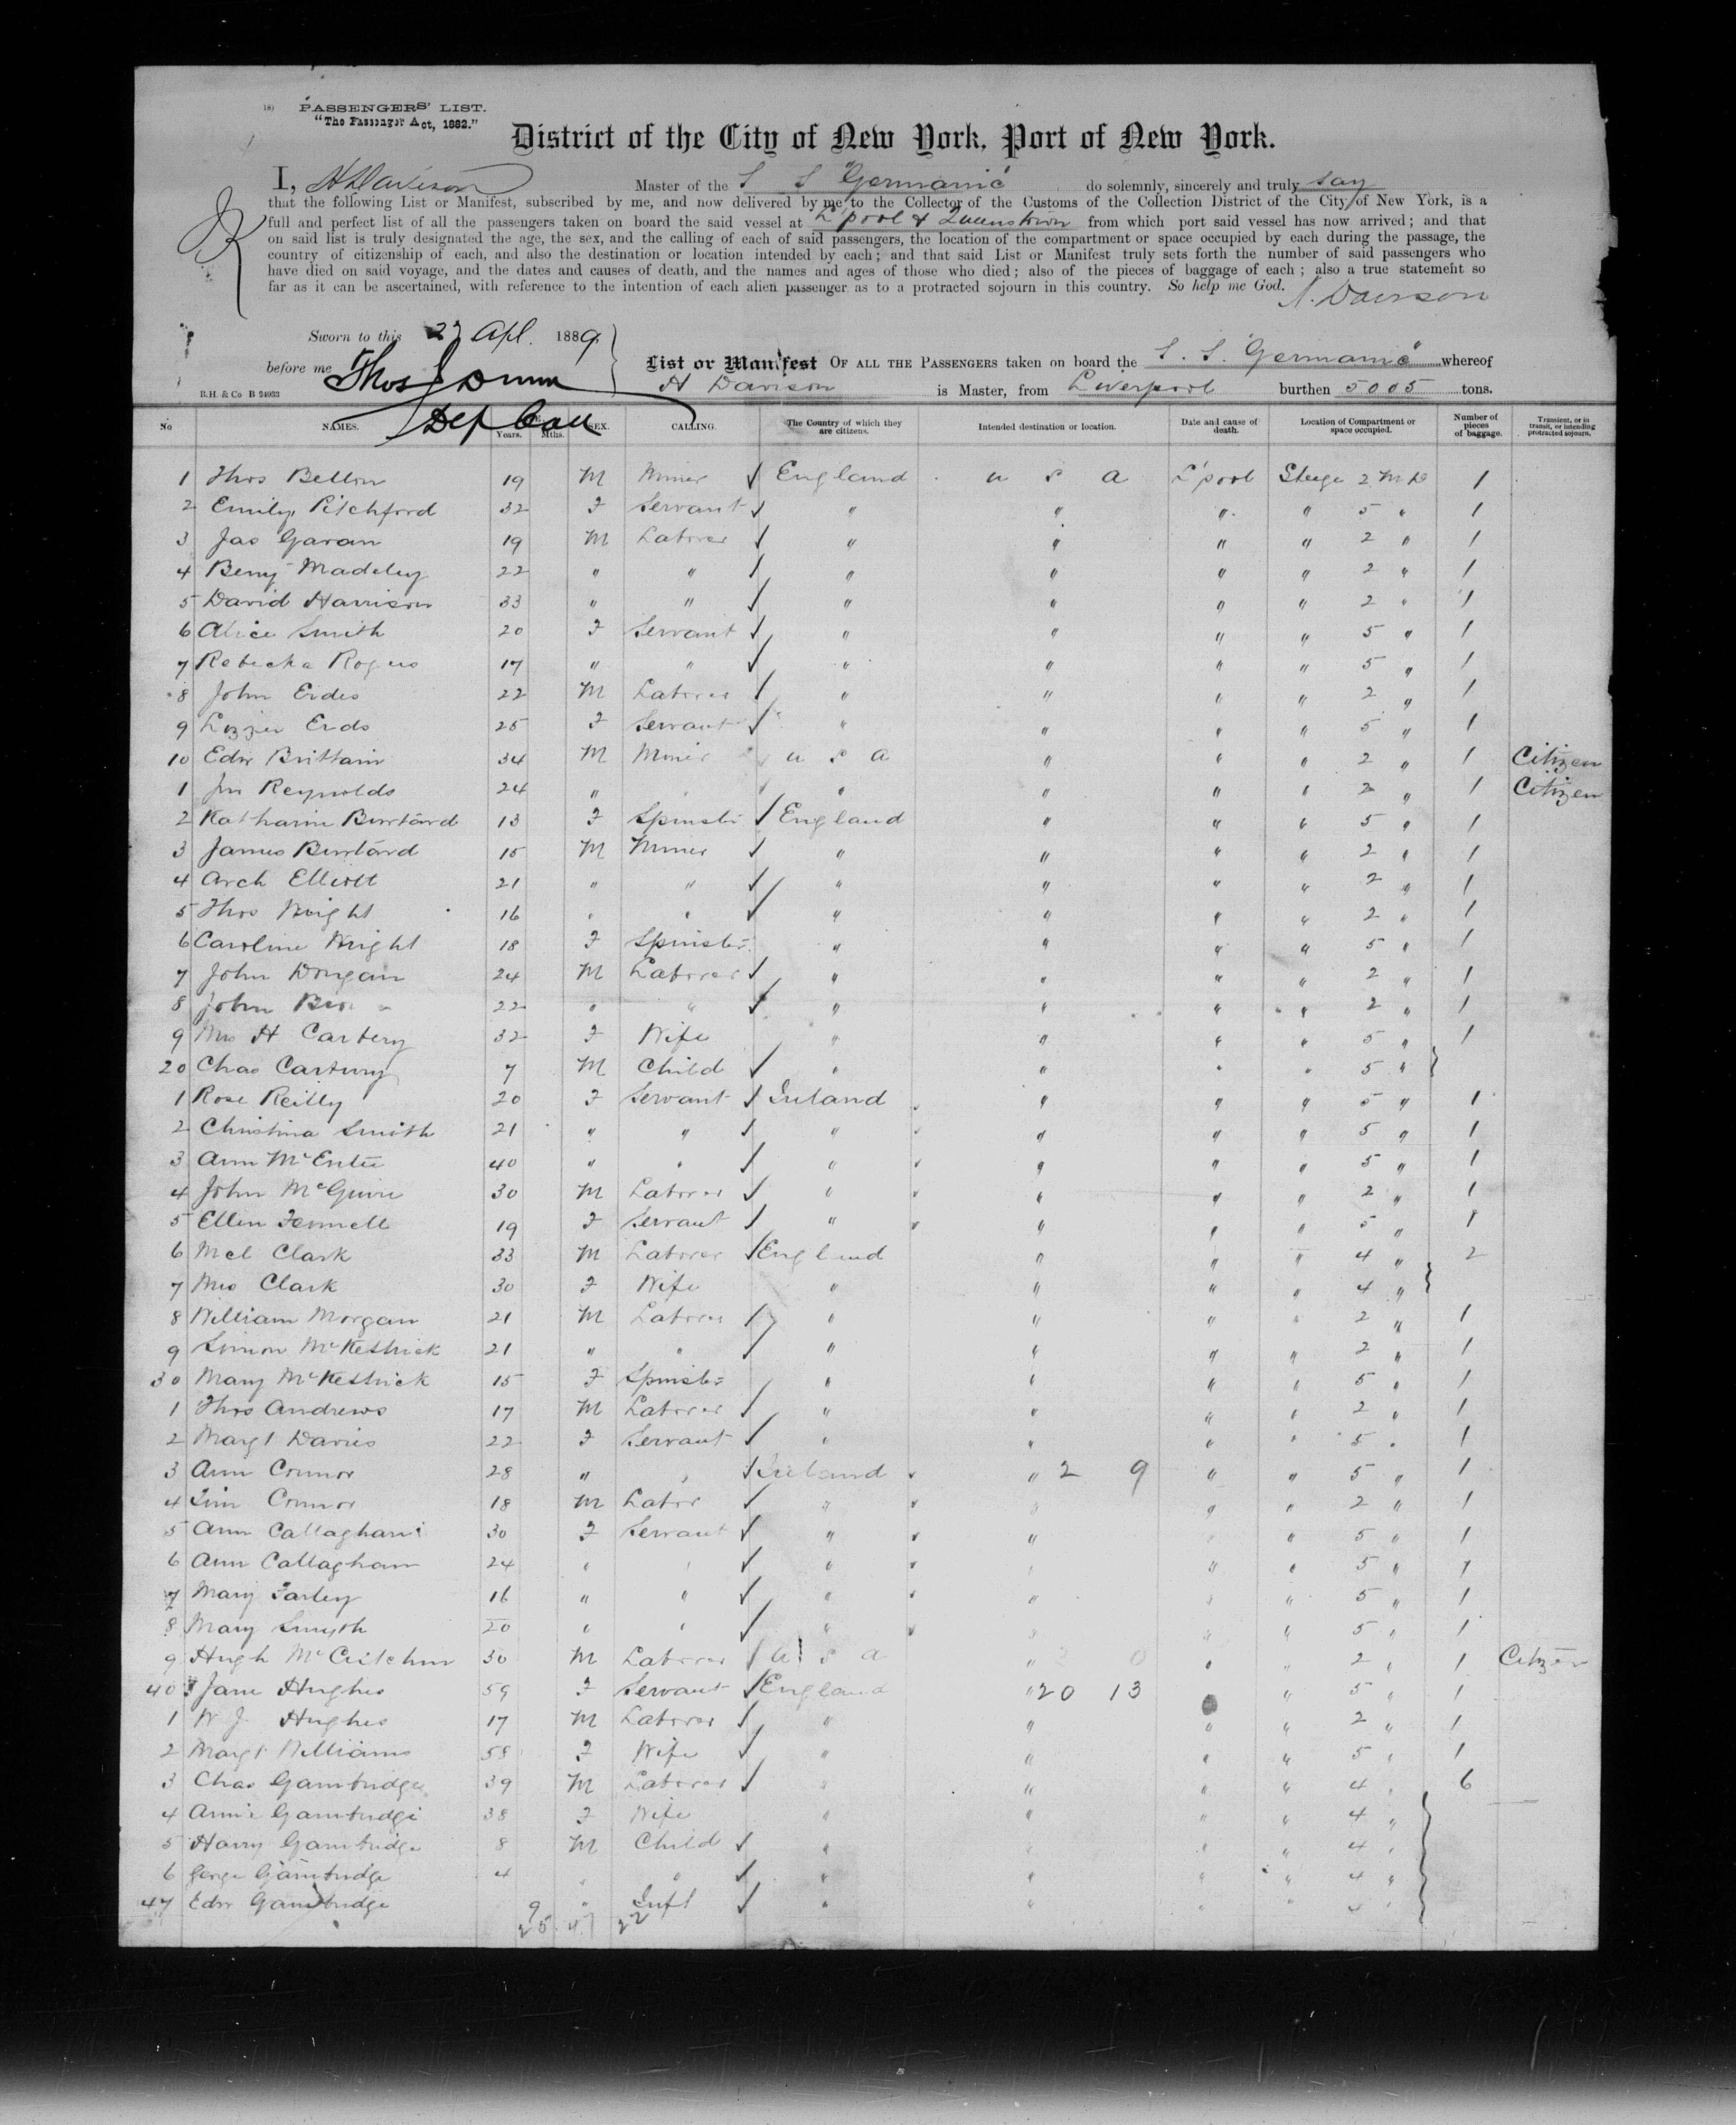 PASSENGERS' LIST.
"The Passenger Act, 1882."
District of the City of New York, Port of New York.
I, H Davison Master of the S S "Germanic" do solemnly, sincerely and truly say
that the following List or Manifest, subscribed by me, and now delivered by me to the Collector of the Customs of the Collection District of the City of New York, is a
full and perfect list of all the passengers taken on board the said vessel at L'pool & Queenstown from which port said vessel has now arrived; and that
on said list is truly designated the age, the sex, and the calling of each of said passengers, the location of the compartment or space occupied by each during the passage, the
country of citizenship of each, and also the destination or location intended by each; and that said List or Manifest truly sets forth the number of said passengers who
have died on said voyage, and the dates and causes of death, and the names and ages of those who died; also of the pieces of baggage of each; also a true statement so
far as it can be ascertained, with reference to the intention of each alien passenger as to a protracted sojourn in this country. So help me God. H. Davison
Sworn to this 27 Apl. 1889
before me Thos J Dunn
Dep Coll
List or Manifest OF ALL THE PASSENGERS taken on board the S. S. "Germanic" whereof
H Davison is Master, from Liverpool burthen 5005 tons.
R.H. & Co B 24933
No NAMES. Years. Mths. SEX. CALLING. The Country of which they are citizens. Intended destination or location. Date and cause of death. Location of Compartment or space occupied. Number of pieces of baggage. Transient, or in transit, or intending protracted sojourn.
1 Thos Bellin 19 M Miner England U S A L'pool Steege 2 M D 1
2 Emily Pitchford 32 F Servant " " " " 5 " 1
3 Jas Gavan 19 M Laborer " " " " 2 " 1
4 Benj Madeley 22 " " " " " " 2 " 1
5 David Harrison 33 " " " " " " 2 " 1
6 Alice Smith 20 F Servant " " " " 5 " 1
7 Rebecka Rogers 17 " " " " " " 5 " 1
8 John Erdes 22 M Laborer " " " " 2 " 1
9 Lizzie Erds 25 F Servant " " " " 5 " 1
10 Edw Brittain 34 M Miner U S A " " " 2 " 1 Citizen
1 Jn Reynolds 24 " " " " " " 2 " 1 Citizen
2 Katharine 13 F Spinster England " " " 5 " 1
3 James 15 M Miner " " " " 2 " 1
4 Arch Elliott 21 " " " " " " 2 " 1
5 Thos Wright 16 " " " " " " 2 " 1
6 Caroline Wright 18 F Spinster " " " " 5 " 1
7 John Dongan 24 M Laborer " " " " 2 " 1
8 John 22 " " " " " " 2 " 1
9 Mrs H Carbery 32 F Wife " " " " 5 " 1
20 Chas Carbury 7 M Child " " " " 5 "
1 Rose Reilly 20 F Servant Ireland " " " 5 " 1
2 Christina Smith 21 " " " " " " 5 " 1
3 Ann McEntee 40 " " " " " " 5 " 1
4 John McGuire 30 M Laborer " " " " 2 " 1
5 Ellen Fennell 19 F Servant " " " " 5 " 1
6 Mcl Clark 33 M Laborer England " " " 4 " 2
7 Mrs Clark 30 F Wife " " " " 4 "
8 William Morgan 21 M Laborer " " " " 2 " 1
9 Simon McKestrick 21 " " " " " " 2 " 1
30 Mary McKestrick 15 F Spinster " " " " 5 " 1
1 Thos Andrews 17 M Laborer " " " " 2 " 1
2 Margt Davies 22 F Servant " " " " 5 " 1
3 Ann Connor 28 " " Ireland " 2 9 " " 5 " 1
4 Tim Connor 18 M Labor " " " " 2 " 1
5 Ann Callaghan 30 F Servant " " " " 5 " 1
6 Ann Callaghan 24 " " " " " " 5 " 1
7 Mary Farley 16 " " " " " " 5 " 1
8 Mary Smyth 20 " " " " " " 5 " 1
9 Hugh McCutchin 30 M Laborer U S A " " " 2 " 1 Citizen
40 Jane Hughes 59 F Servant England " 20 13 " 5 " 1
1 W J Hughes 17 M Laborer " " " " 2 " 1
2 Margt Williams 58 F Wife " " " " 5 " 1
3 Chas Gambridge 39 M Laborer " " " " 4 " 6
4 Annie Gambridge 38 F Wife " " " " 4 "
5 Harry Gambridge 8 M Child " " " " 4 "
6 George Gambridge 4 " " " " " " 4 "
47 Edw Gambridge 9 " Inft " " " " 4 "
25 47 22